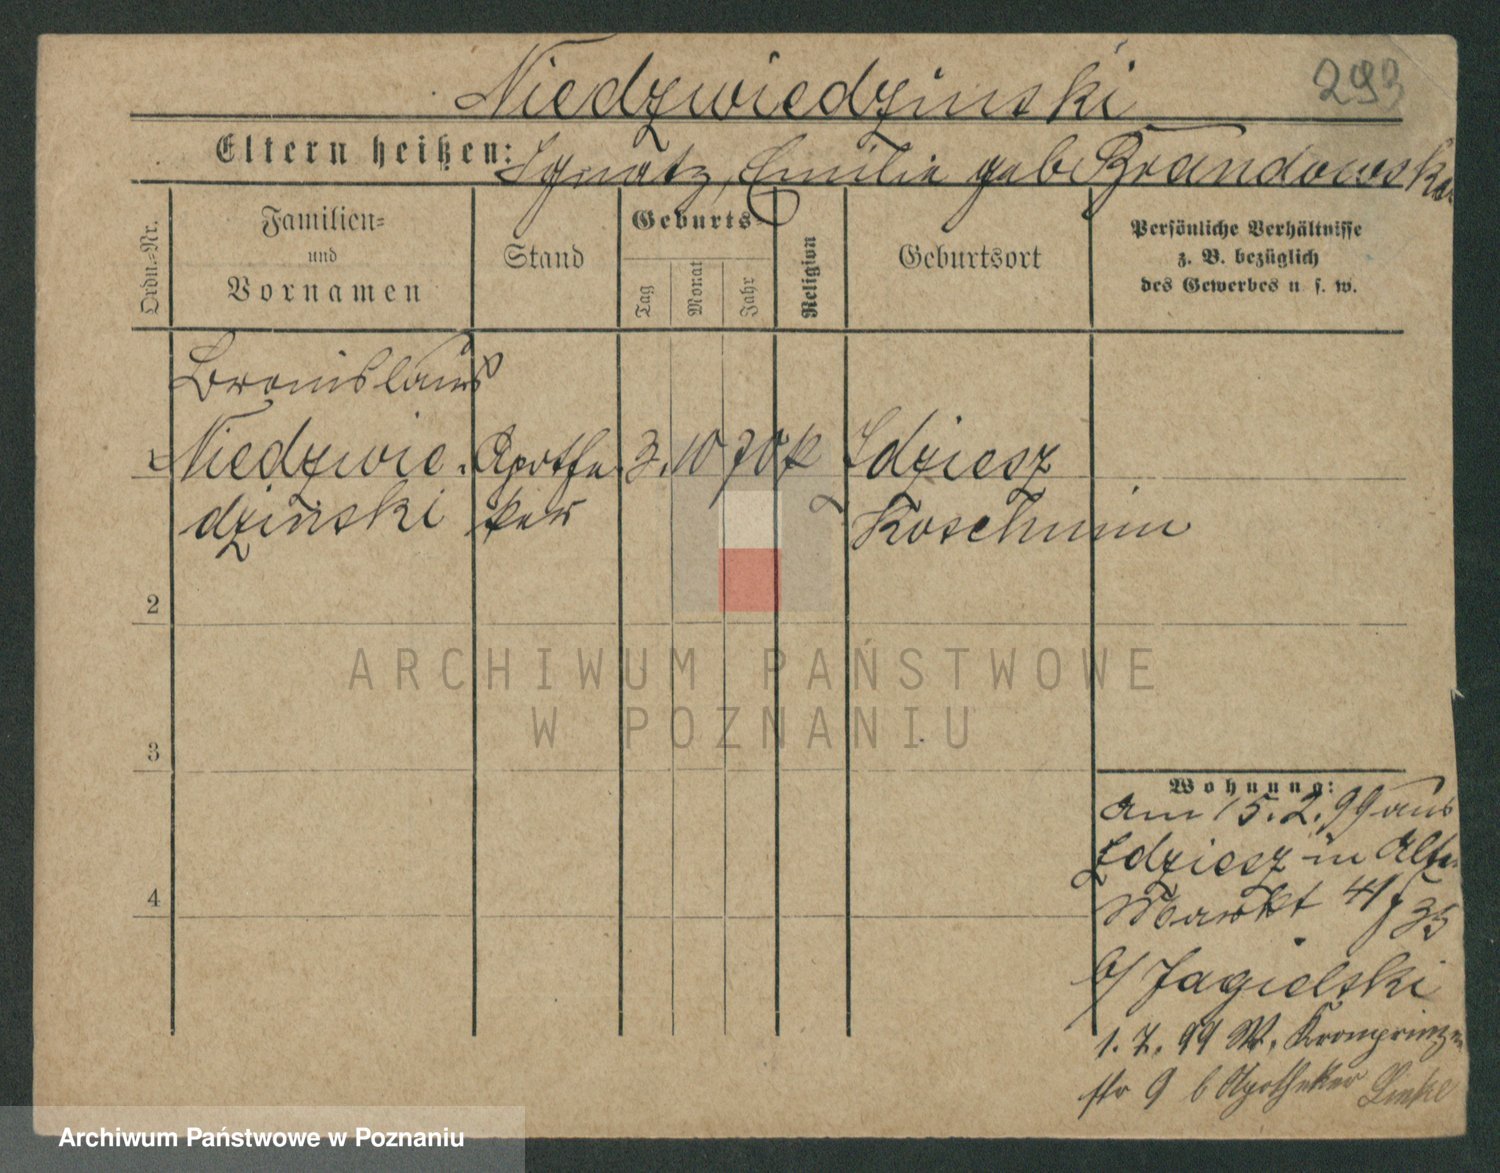 293
Niedzwiedzinski
Eltern heißen: Ignatz, Emilie geb Brandowska
Ordn.-Nr.
Familien- und Vornamen
Stand
Geburts-
Tag
Monat
Jahr
Religion
Geburtsort
Persönliche Verhältnisse
z. B. bezüglich
des Gewerbes u. s. w.
Bronislaus
1 Niedzwie. Apothe 3. 10 70 k Zdziesz
dzinski ker Koschmin
2
3
4
ARCHIWUM PAŃSTWOWE
W POZNANIU
Wohnung:
am 15.2.99 aus
Zdziesz in Alter
Markt 41 35
b/ Jagielski
1. 7. 99 W. Kronprinzen
str 9 b Apotheker Linke
Archiwum Państwowe w Poznaniu